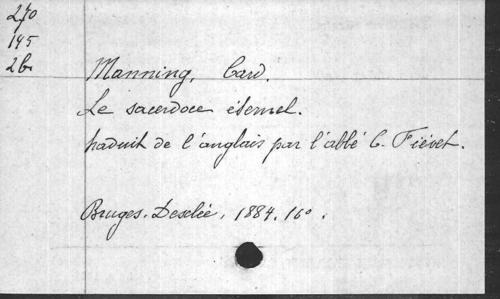 270
145
2b.
Manning, Card.
Le sacerdoce éternel.
traduit de l'anglais par l'abbé C. Fiévet.
Bruges. Desclée, 1884. 16o.